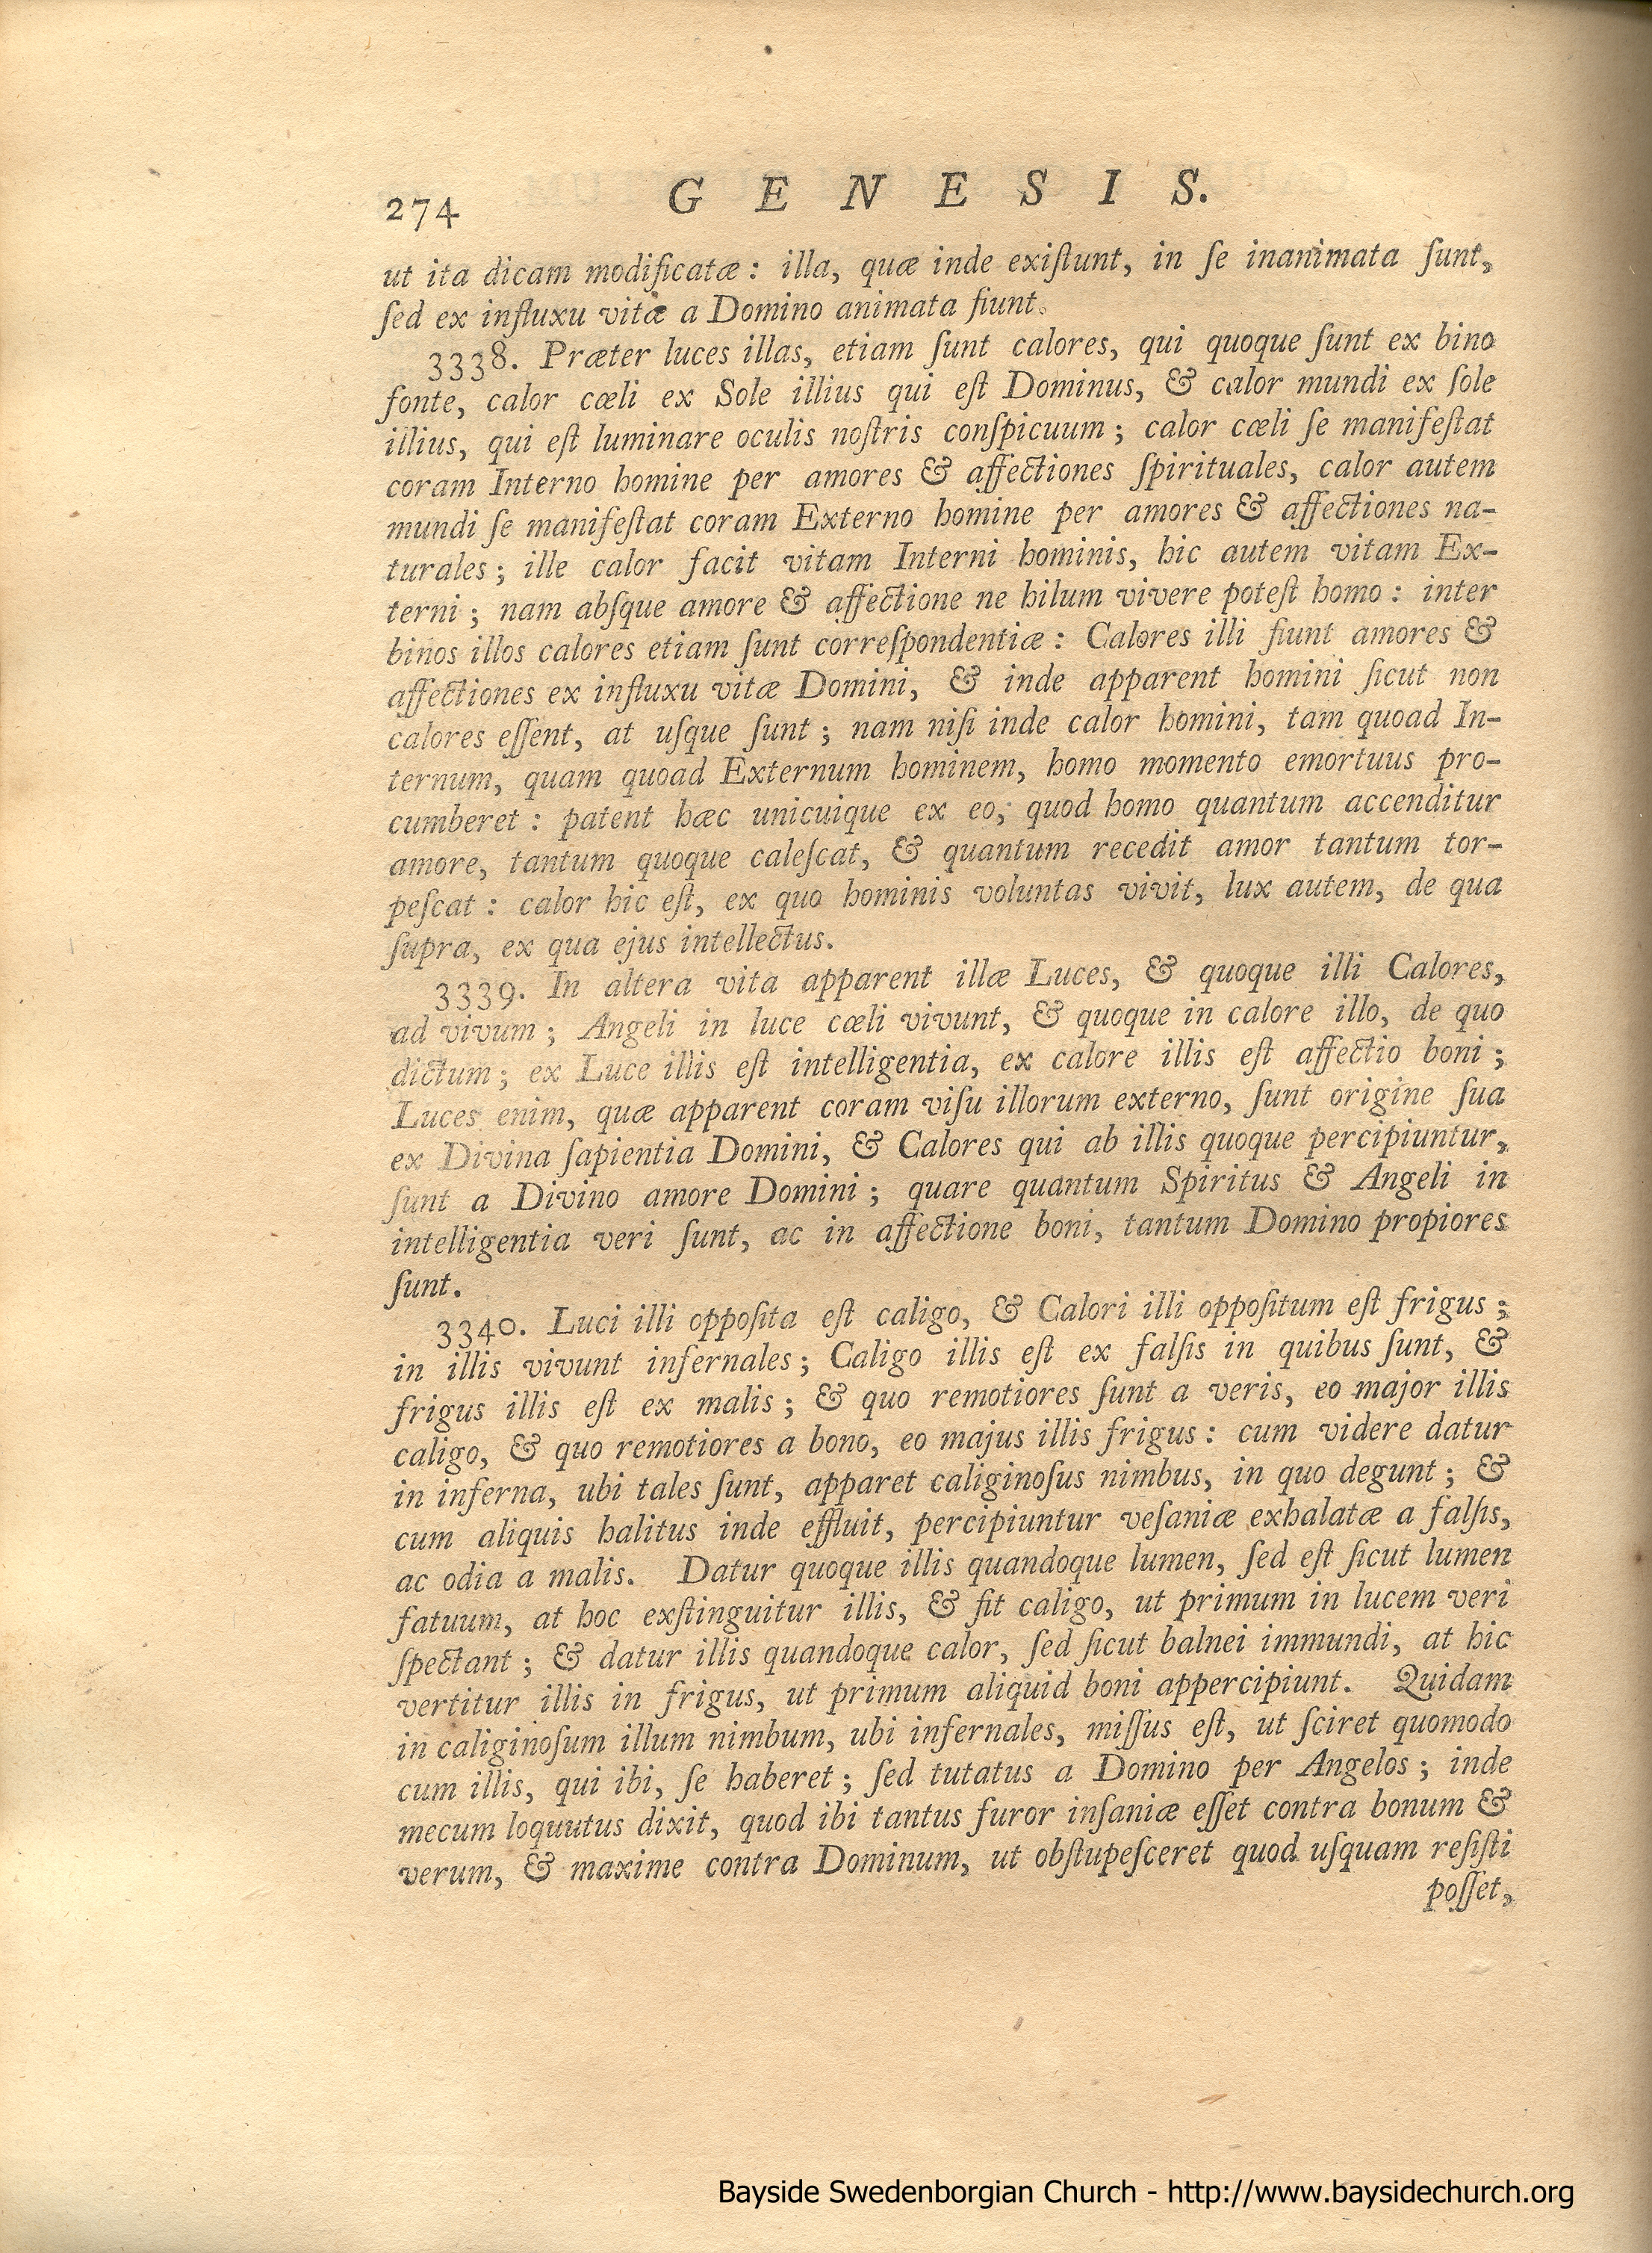 274 G E N E S I S.
ut ita dicam modificatæ : illa, quæ inde exiſtunt, in ſe inanimata ſunt,
ſed ex influxu vitæ a Domino animata fiunt.
3338. Præter luces illas, etiam ſunt calores, qui quoque ſunt ex bino
fonte, calor cœli ex Sole illius qui eſt Dominus, & calor mundi ex ſole
illius, qui eſt luminare oculis noſtris conſpicuum ; calor cœli ſe manifeſtat
coram Interno homine per amores & affectiones ſpirituales, calor autem
mundi ſe manifeſtat coram Externo homine per amores & affectiones na-
turales ; ille calor facit vitam Interni hominis, hic autem vitam Ex-
terni ; nam abſque amore & affectione ne hilum vivere poteſt homo : inter
binos illos calores etiam ſunt correſpondentiæ : Calores illi fiunt amores &
affectiones ex influxu vitæ Domini, & inde apparent homini ſicut non
calores eſſent, at uſque ſunt ; nam niſi inde calor homini, tam quoad In-
ternum, quam quoad Externum hominem, homo momento emortuus pro-
cumberet : patent hæc unicuique ex eo, quod homo quantum accenditur
amore, tantum quoque caleſcat, & quantum recedit amor tantum tor-
peſcat : calor hic eſt, ex quo hominis voluntas vivit, lux autem, de qua
ſupra, ex qua ejus intellectus.
3339. In altera vita apparent illæ Luces, & quoque illi Calores,
ad vivum ; Angeli in luce cœli vivunt, & quoque in calore illo, de quo
dictum ; ex Luce illis eſt intelligentia, ex calore illis eſt affectio boni ;
Luces enim, quæ apparent coram viſu illorum externo, ſunt origine ſua
ex Divina ſapientia Domini, & Calores qui ab illis quoque percipiuntur,
ſunt a Divino amore Domini ; quare quantum Spiritus & Angeli in
intelligentia veri ſunt, ac in affectione boni, tantum Domino propiores
ſunt.
3340. Luci illi oppoſita eſt caligo, & Calori illi oppoſitum eſt frigus ;
in illis vivunt infernales ; Caligo illis eſt ex falſis in quibus ſunt, &
frigus illis eſt ex malis ; & quo remotiores ſunt a veris, eo major illis
caligo, & quo remotiores a bono, eo majus illis frigus : cum videre datur
in inferna, ubi tales ſunt, apparet caliginoſus nimbus, in quo degunt ; &
cum aliquis halitus inde effluit, percipiuntur veſaniæ exhalatæ a falſis,
ac odia a malis. Datur quoque illis quandoque lumen, ſed eſt ſicut lumen
fatuum, at hoc exſtinguitur illis, & fit caligo, ut primum in lucem veri
ſpectant ; & datur illis quandoque calor, ſed ſicut balnei immundi, at hic
vertitur illis in frigus, ut primum aliquid boni appercipiunt. Quidam
in caliginoſum illum nimbum, ubi infernales, miſſus eſt, ut ſciret quomodo
cum illis, qui ibi, ſe haberet ; ſed tutatus a Domino per Angelos ; inde
mecum loquutus dixit, quod ibi tantus furor inſaniæ eſſet contra bonum &
verum, & maxime contra Dominum, ut obſtupeſceret quod uſquam reſiſti
poſſet,
Bayside Swedenborgian Church - http://www.baysidechurch.org